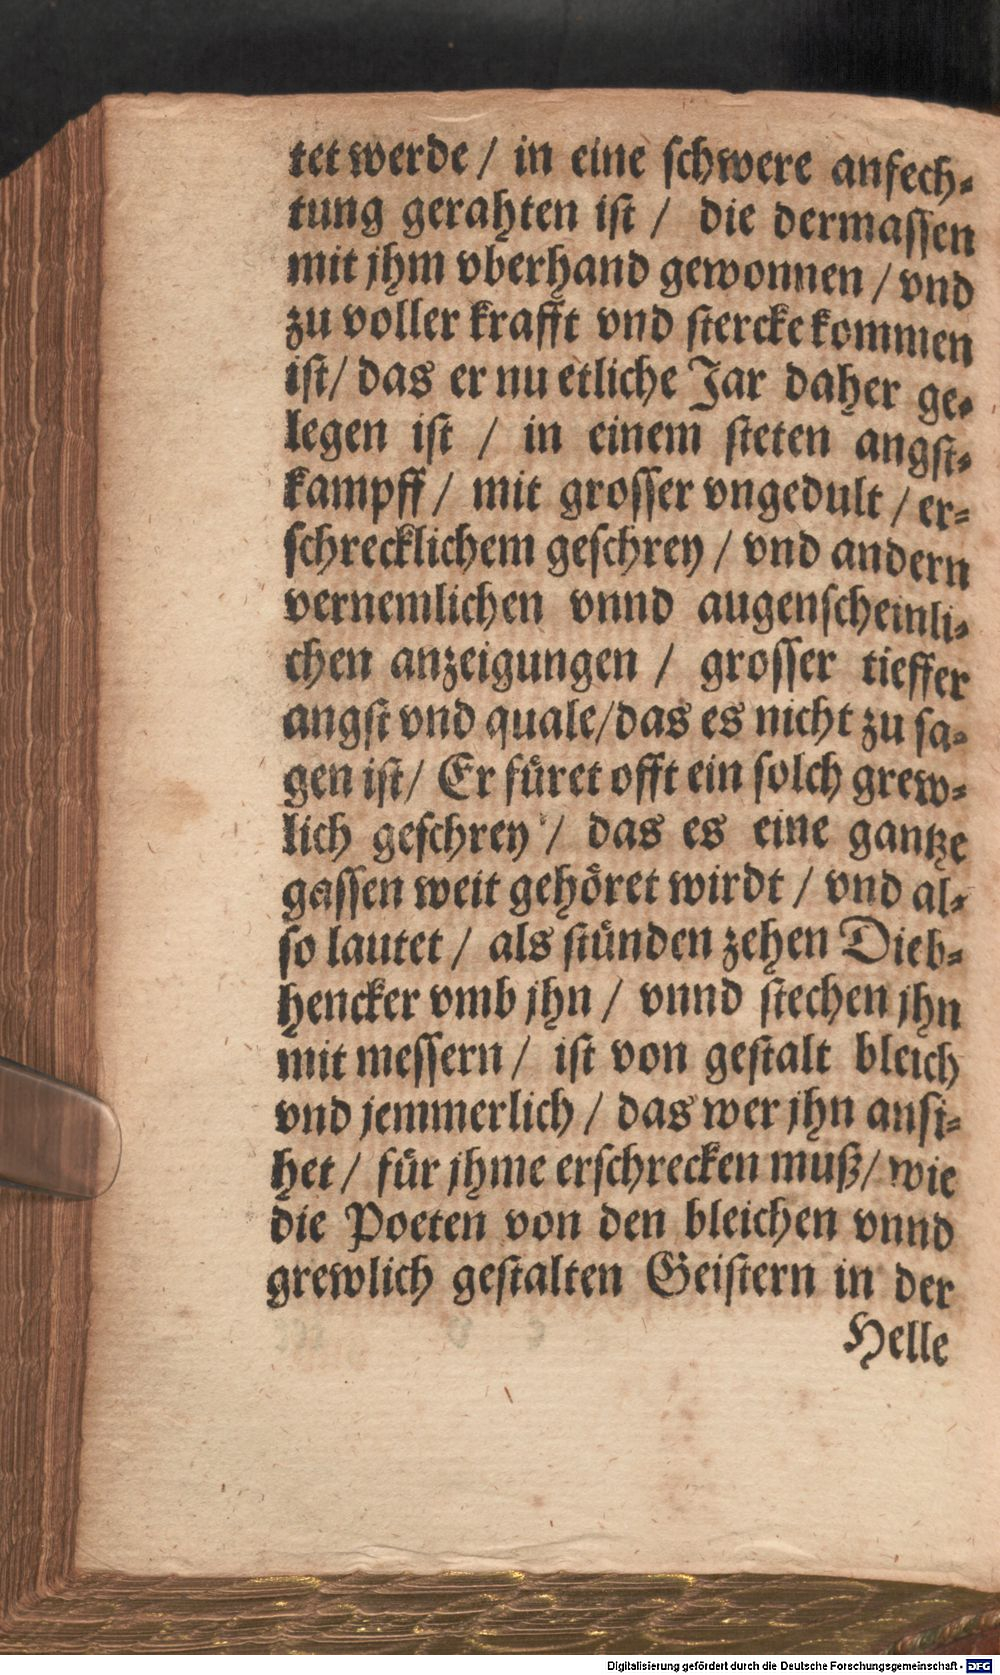 tet werde / in eine schwere anfech⸗
tung gerahten ist / die dermassen
mit jhm vberhand gewonnen / vnd
zu voller krafft vnd stercke kommen
ist / das er nu etliche Jar daher ge⸗
legen ist / in einem steten angst⸗
kampff / mit grosser vngedult / er⸗
schrecklichem geschrey / vnd andern
vernemlichen vnnd augenscheinli⸗
chen anzeigungen / grosser tieffer
angst vnd quale / das es nicht zu sa⸗
gen ist / Er füret offt ein solch grew⸗
lich geschrey / das es eine gantze
gassen weit gehöret wirdt / vnd al⸗
so lautet / als stünden zehen Dieb⸗
hencker vmb jhn / vnnd stechen jhn
mit messern / ist von gestalt bleich
vnd jemmerlich / das wer jhn ansi⸗
het / für jhme erschrecken muß / wie
die Poeten von den bleichen vnnd
grewlich gestalten Geistern in der
Helle
Digitalisierung gefördert durch die Deutsche Forschungsgemeinschaft - DFG